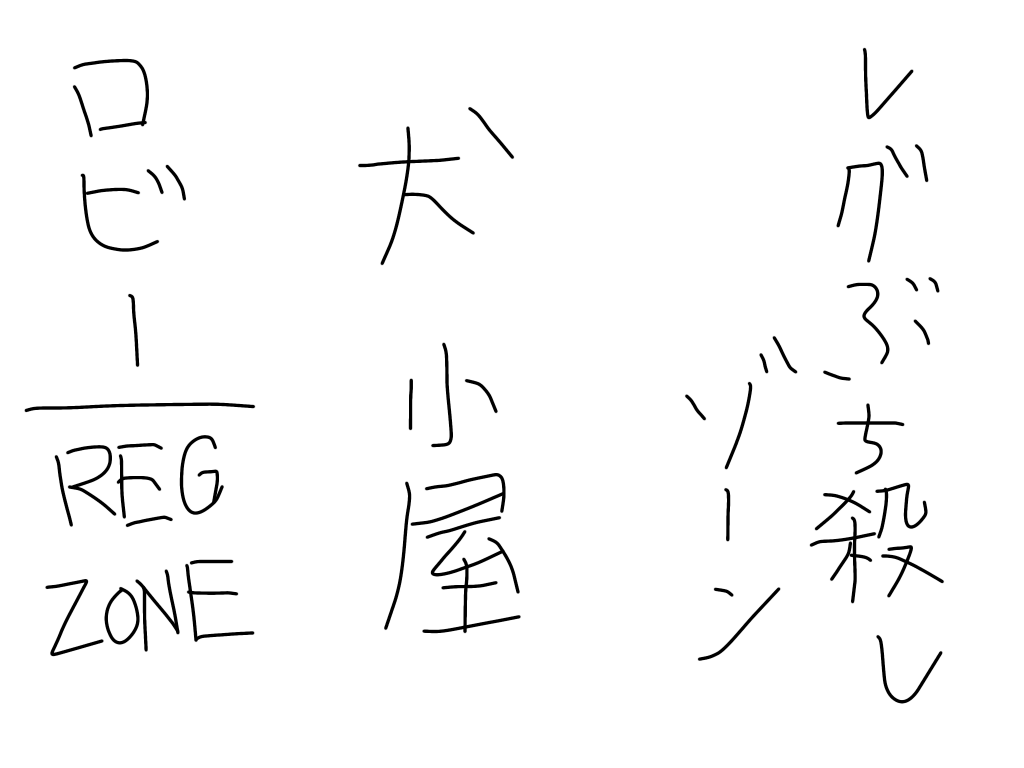 レグぶち殺し
ゾーン
犬小屋
ロビー
REG
ZONE